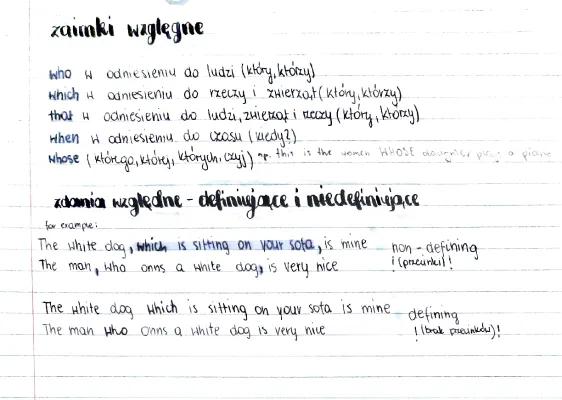 zaimki względne
who w odniesieniu do ludzi (który, którzy)
which w odniesieniu do rzeczy i zwierząt (który, którzy)
that w odniesieniu do ludzi, zwierząt i rzeczy (który, którzy)
when w odniesieniu do czasu (kiedy?)
whose (którego, której, których, czyj) np. this is the women WHOSE daughter play a piano
zdania względne - definiujące i niedefiniujące
for example:
The white dog, which is sitting on your sofa, is mine non-defining
The man, who owns a white dog, is very nice ! (przecinki)!
The white dog which is sitting on your sofa is mine defining
The man who owns a white dog is very nice ! (brak przecinków)!